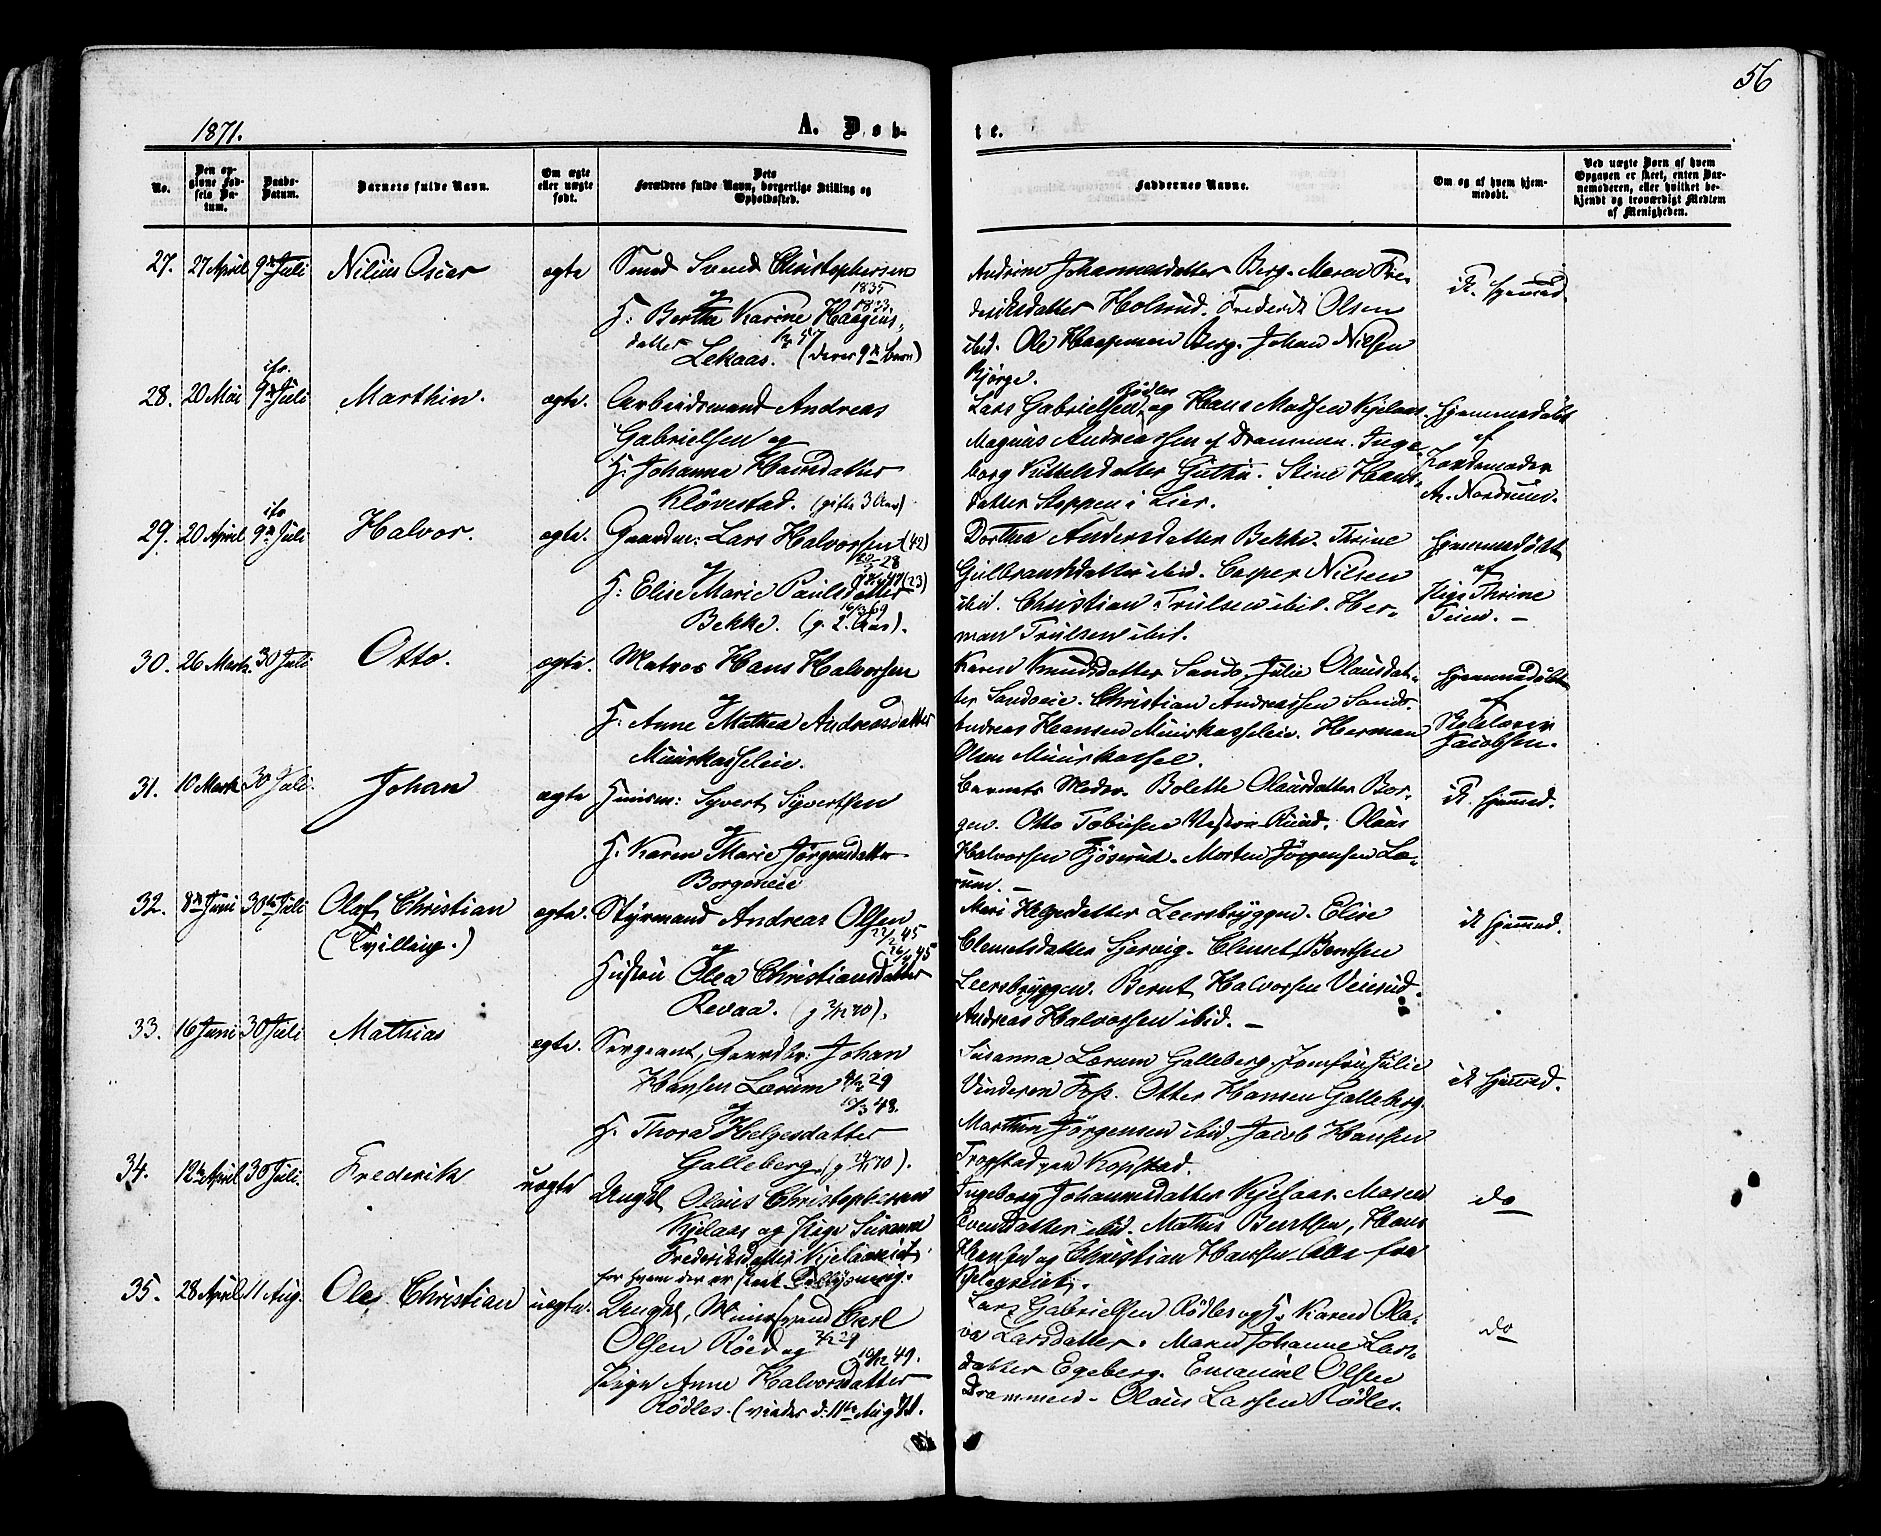 56
1871.
A. Døb-
te.
No.
Den opgivne Fødsels Datum.
Daabs-Datum.
Barnets fulde Navn.
Om ægte eller uægte født.
Dets Forældres fulde Navn, borgerlige Stilling og Opholdssted.
Faddernes Navne.
Om og af hvem hjemmedøbt.
Ved uægte Børn af hvem Opgaven er skeet, enten Barnemoderen, eller hvilket bekjendt og troværdigt Medlem af Menigheden.
27. 27 April 9de Juli Nilius Oscar ægte Smed Svend Christophersen
1835
og 1833
H: Bertha Karine Haagens-
datter
Lekaas. (deres 9de barn)
Andrine Johannesdatter Berg. Maren Fre-
deriksdatter Holmud. Frederik Olsen
ibid. Ole Haagensen Berg. Johan Nilsen
Bjørge.
ik. hjemmed.
28. 20 Mai 9de Juli Marthin. ægte. Arbeidsmand Andreas
Gabrielsen og
H: Johanna Hansdatter
Kløvestad. (gifte 3 Aar)
Lars Gabrielsen Rødles og Hans Madsen Kjelaas.
Magnus Andreassen af Drammen. Inge-
borg Kittelsdatter Guthu. Stine Hans-
datter Stoppen i Lier.
Hjemmedøbt
af
Jordemoder
A. Nordrum.
29. 20 April 9de Juli Halvor. ægte. Gaardm: Lars Halvorsen (42)
28
og 47 (23)
H: Elise Marie Paulsdatter
16/3 69
Bekke. (g. 2. Aar).
Dorthea Andersdatter Bekke. Thrine
Gulbrandsdatter ibid. Casper Nilsen
ibid. Christian Trulsen ibid. Her-
man Trulsen ibid.
hjemmedøbt
af
Pige Thrine
Tuen. —
30. 26 Marts 30 Juli Otto. ægte. Matros Hans Halvorsen
og
H: Anne Mathea Andreasdatter
Muurkasseleie.
Karen Knudsdatter Sando. Julie Olausdat-
ter Sandoeie. Christian Andreassen Sando.
Andreas Hansen Muurkasseleie. Herman
Olsen Muurkassel.
hjemmedøbt
af
Skolelærer
Jacobsen.
31. 10 Marts 30 Juli. Johan ægte Huusm: Syvert Syvertsen
og
H. Karen Marie Jørgensdatter
Borgeneie
Barnets Moder. Bolette Olausdatter Bor-
gen. Otto Tobiesen Vestre Ruud. Olaus
Halvorsen Fjøserud. Morten Jørgensen Læ-
rum. —
ik. hjemmed.
32. 8de Juni 30te Juli Olaf Christian
(Tvilling.)
ægte. Styrmand Andreas Olsen
22/2 45
og 26/4 45
Hustru Olea Christiansdatter
Revaa. (g 2/12 70).
Mari Helgesdatter Leersbryggen. Elise
Clemetsdatter Gjervig. Clemet Berntsen
Leersbryggen. Bernt Halvorsen Veierud.
Andreas Halvorsen ibid. —
ik hjemmed.
33. 16 Juni 30 Juli Mathias ægte. Sergeant, Gaardbr: Johan
Hansen Lærum 29
og 10/3 48.
H. Thora Helgesdatter
Galleberg. (g 70).
Susanna Lærum Galleberg. Jomfru Julie
Vinderen Foss. Otter Hansen Galleberg.
Marthin Jørgensen ibid. Jacob Hansen
Tropstad paa Kopstad.
ik hjemmed.
34. 12te April 30 Juli. Frederik uægte Ungkl Olaus Christophersen
Kjelaas og Pige Susanne
Frederiksdatter Kjelaaseiet.
for hvem der er skeet Tillysning.
Ingeborg Johannesdatter Kjelaas. Maren
Evensdatter ibid. Mathis Berntsen, Hans
Hansen og Christian Hansen Alle fra
Kjelaaseiet.
do
35. 28 April 11 Aug. Ole Christian uægte. Ungkl, Muursvend Carl
Olsen Røed og 29
10/12 49.
Pige Anne Halvorsdatter
Rødles. (viedes d: 11te Aug 71.
Lars Gabrielsen Rødles og H. Karen Ola-
va Larsdatter. Maren Johanne Lars-
datter Egeberg. Emanuel Olsen
Drammen. Olaus Larsen Rødles.
do